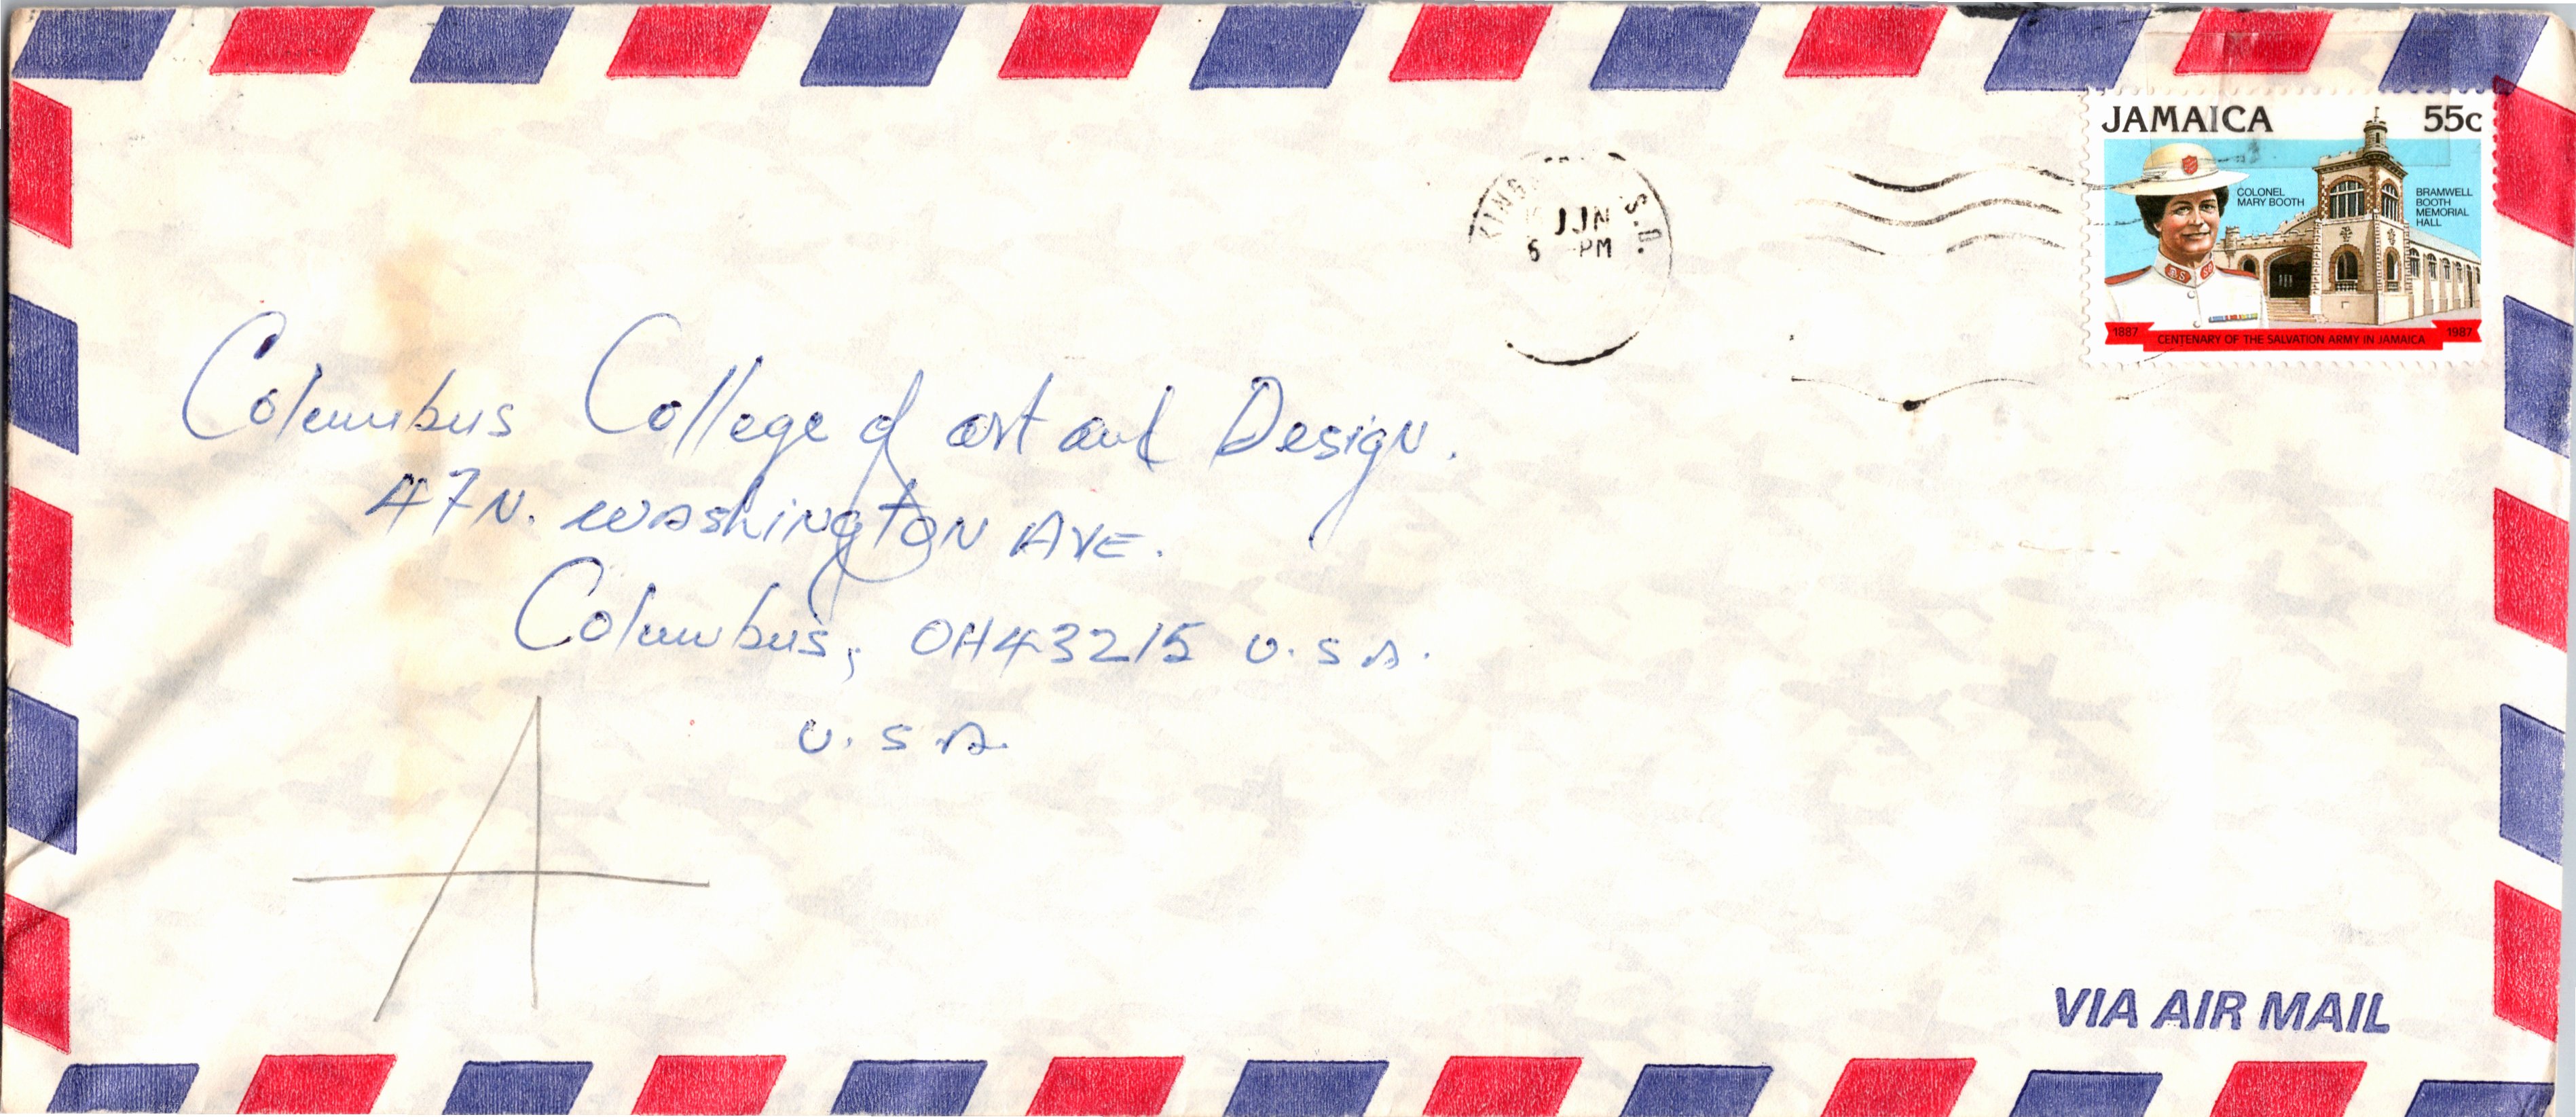 JAMAICA 55c
COLONEL
MARY BOOTH
BRAMWELL
BOOTH
MEMORIAL
HALL
1887 CENTENARY OF THE SALVATION ARMY IN JAMAICA 1987
S.O.
JUN
6 PM
Columbus College of art and Design.
47 N. Washington AVE.
Columbus, OH 43215 U.S.A.
U.S.A.
A
VIA AIR MAIL